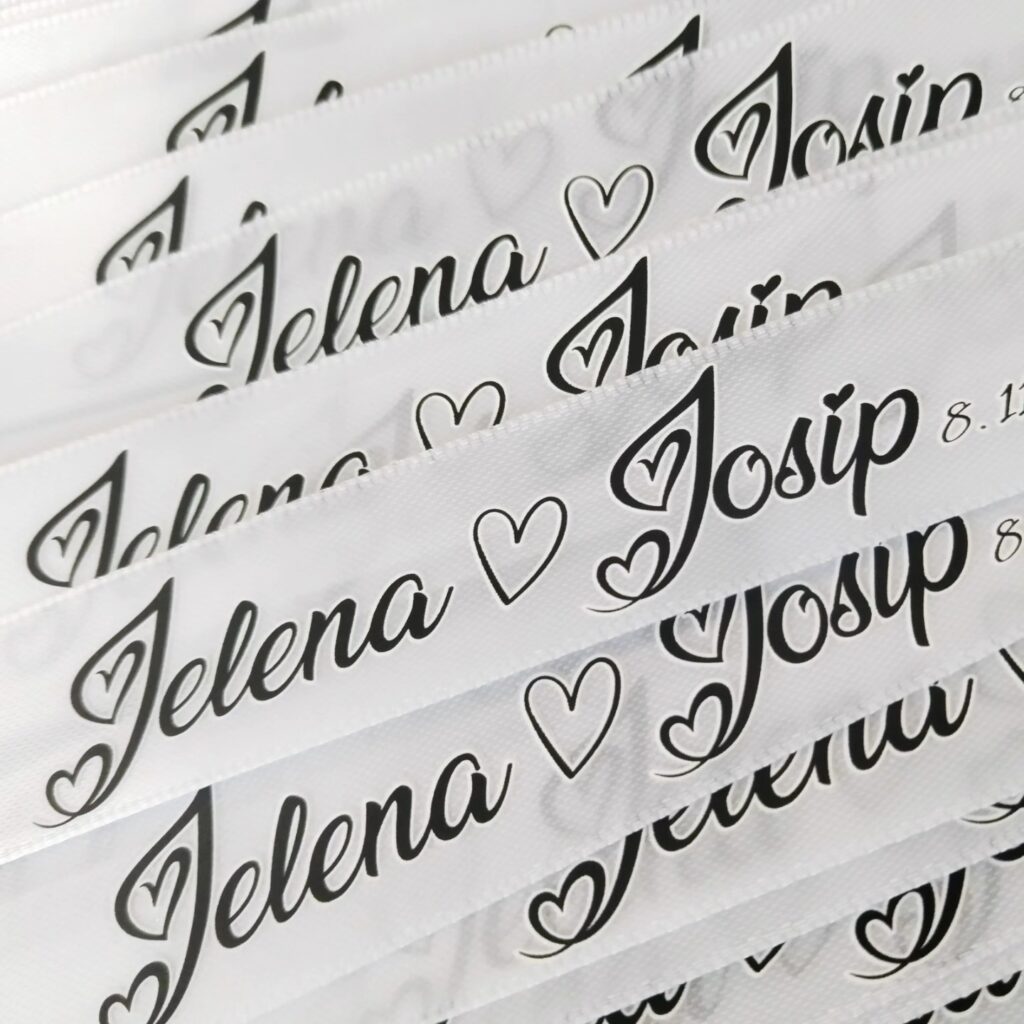 Jelena ♡ Josip
Jelena ♡ Josip
Jelena ♡ Josip 8.11
Jelena ♡ Josip 8
Jelena